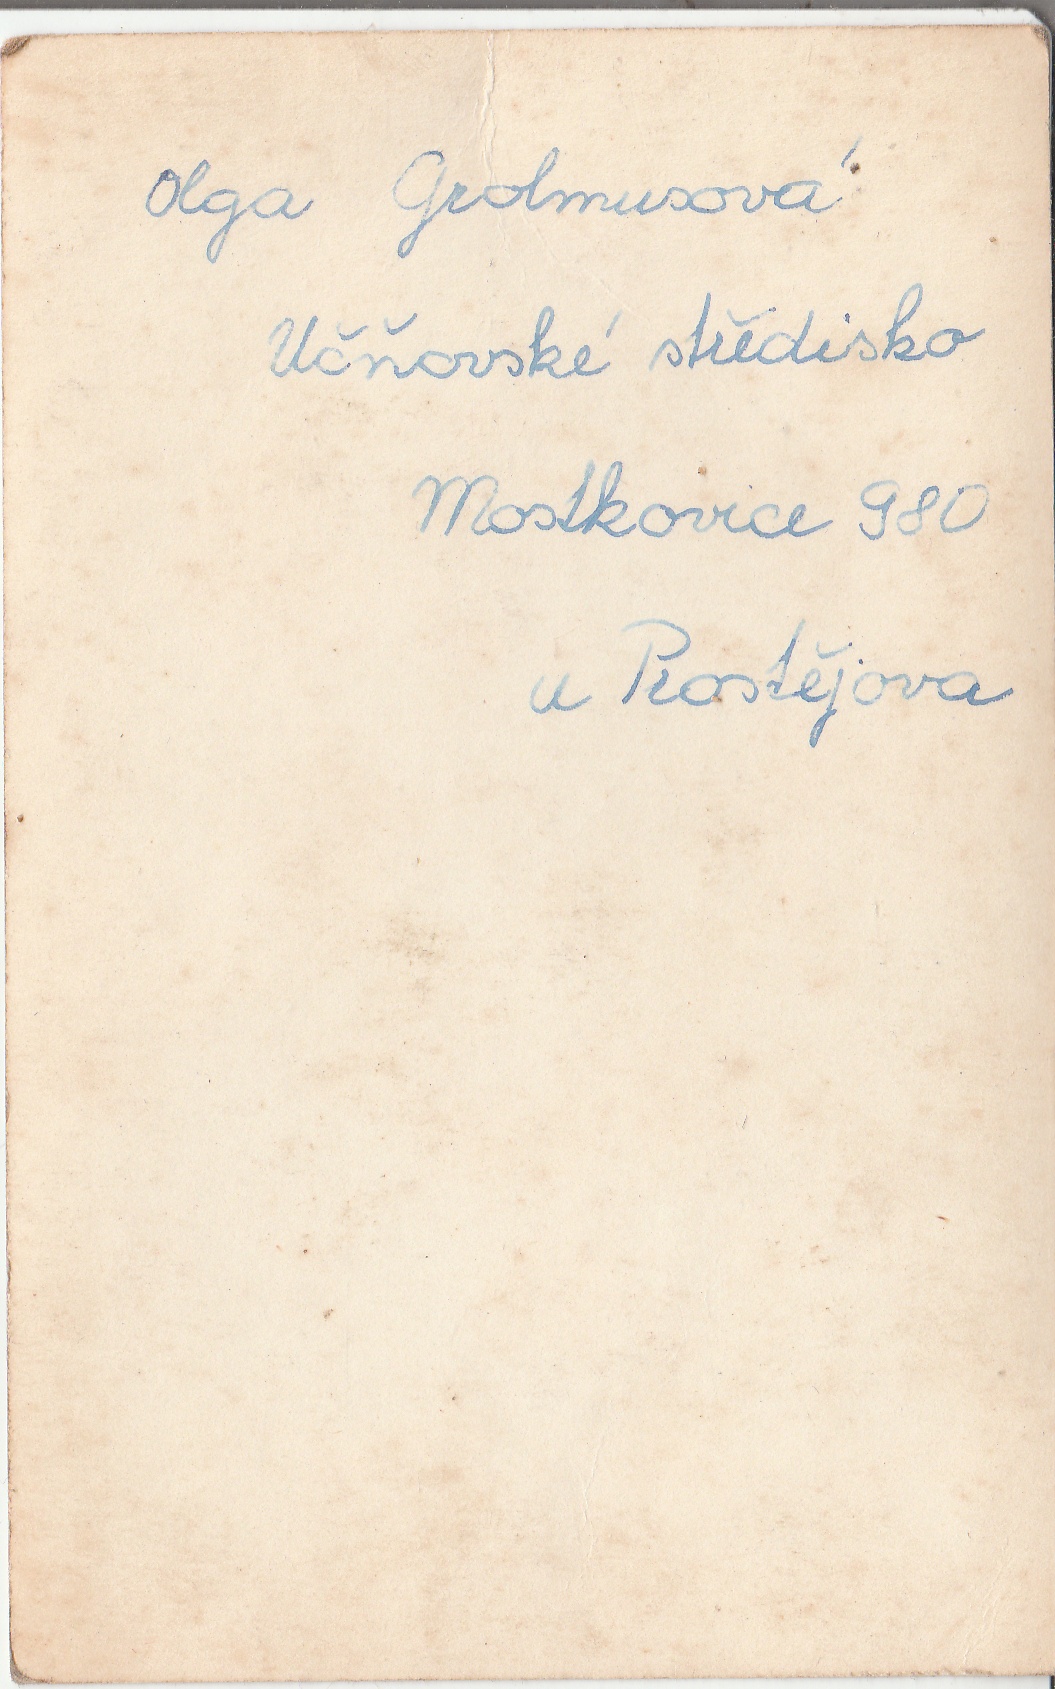 Olga Grolmusová
Učňovské středisko
Mostkovice 980
u Prostějova